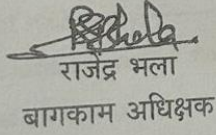 राजेंद्र भला
बागकाम अधिक्षक